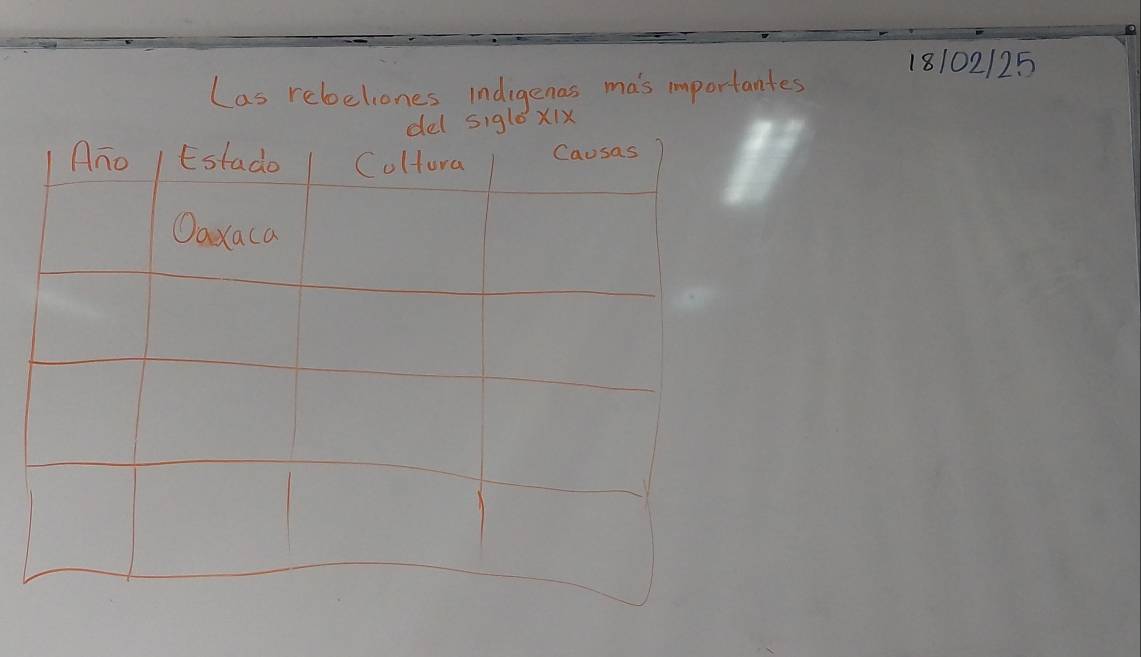 18/02/25
Las rebeliones indigenas más importantes
del siglo XIX
Año Estado Coltura Causas
Oaxaca